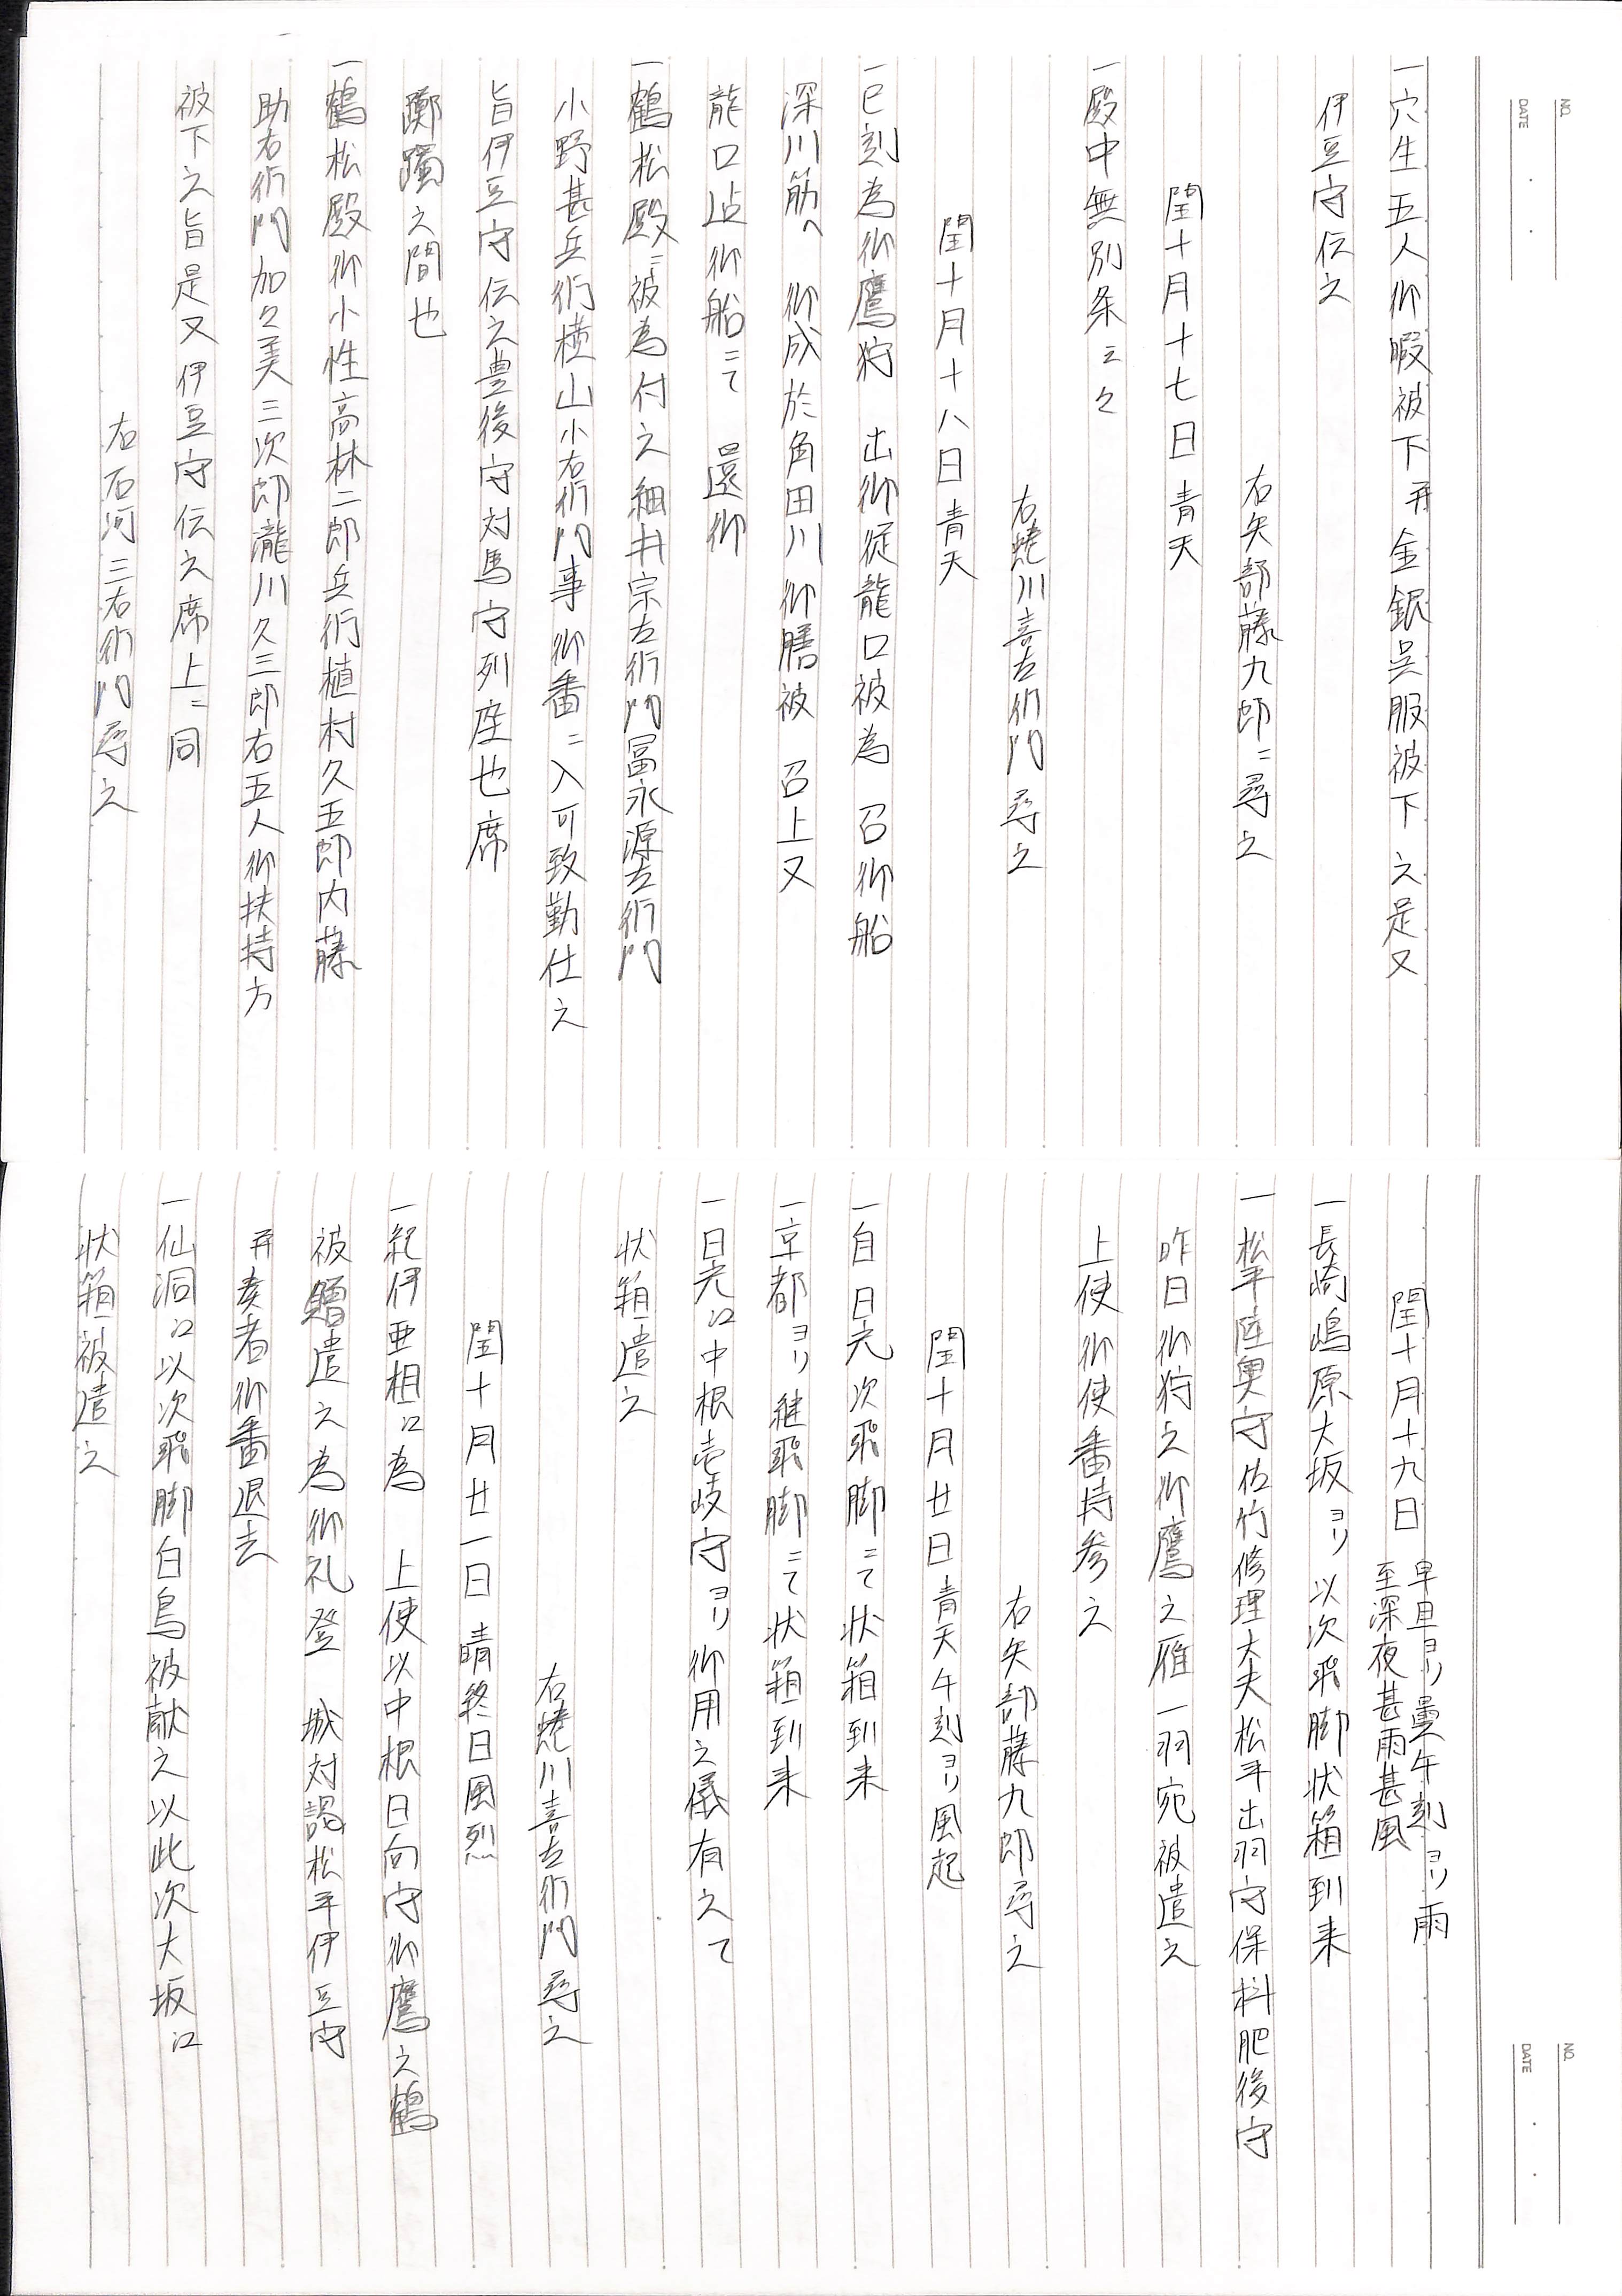 NO.
DATE
一穴生五人御暇被下并金銀呉服被下之是又
伊豆守伝之
右矢部藤九郎ニ尋之
閏十月十七日 青天
一殿中無別条云々
右蜷川喜左衛門尋之
閏十月十八日 青天
一巳刻為御鷹狩 出御従龍口被為 召御船
深川筋へ 御成於角田川御膳被 召上又
龍口迠御船ニて 還御
一鶴松殿ニ被為付之細井宗左衛門冨永源左衛門
小野甚兵衛横山小右衛門事御番ニ入可致勤仕之
旨伊豆守伝之豊後守対馬守列座也席
躑躅之間也
一鶴松殿御小性高林二郎兵衛植村久五郎内藤
助右衛門加々美三次郎瀧川久三郎右五人御扶持方
被下之旨是又伊豆守伝之席上ニ同
右石河三右衛門尋之
NO.
DATE
閏十月十九日 早旦ヨリ曇午刻ヨリ雨
至深夜甚雨甚風
一長崎嶋原大坂ヨリ以次飛脚状箱到来
一松平陸奥守佐竹修理大夫松平出羽守保科肥後守
昨日御狩之御鷹之雁一羽宛被遣之
上使御使番持参之
右矢部藤九郎尋之
閏十月廿日青天午刻ヨリ風起
一自日光次飛脚ニて状箱到来
一京都ヨリ継飛脚ニて状箱到来
一日光江中根壱岐守ヨリ御用之儀有之て
状箱遣之
右蜷川喜左衛門尋之
閏十月廿一日 晴終日風烈
一紀伊亜相江為 上使以中根日向守御鷹之鶴
被贈遣之為御礼登 城対謁松平伊豆守
并奏者御番退去
一仙洞江以次飛脚白鳥被献之以此次大坂江
状箱被遣之